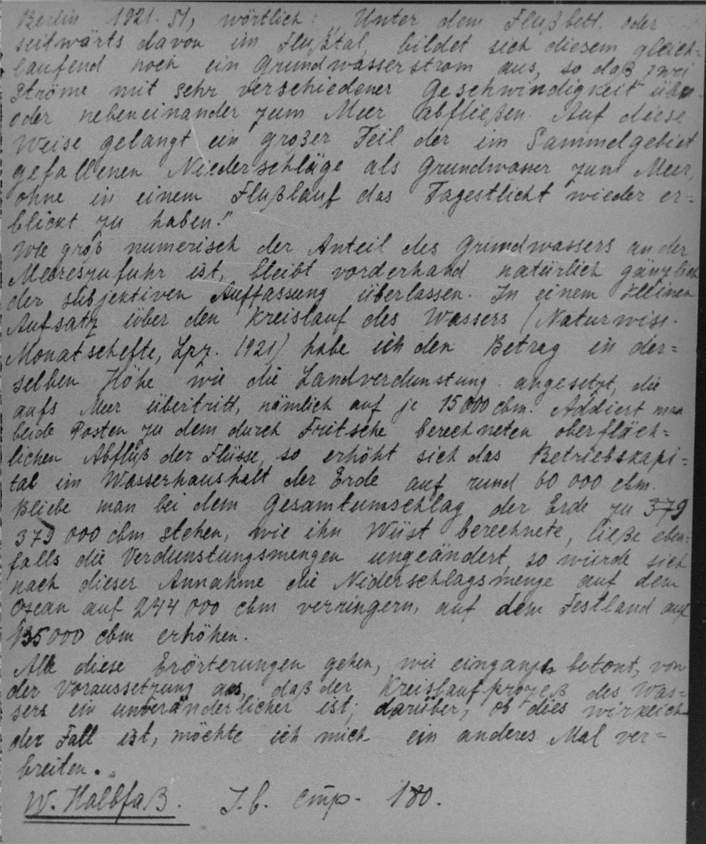 Berlin 1921. 51, wörtlich: „Unter dem Flußbett oder
seitwärts davon im Flußtal, bildet sich diesem gleich-
laufend noch ein Grundwasserstrom aus, so daß zwei
Ströme mit sehr verschiedener Geschwindigkeit über
oder nebeneinander zum Meer abfließen. Auf diese
Weise gelangt ein großer Teil der im Sammelgebiet
gefallenen Niederschläge als Grundwasser zum Meer,
ohne in einem Flußlauf das Tagestlicht wieder er=
blickt zu haben."
Wie groß numerisch der Anteil des Grundwassers an der
Meereszufuhr ist, bleibt vorderhand natürlich gänzlich
der subjektiven Auffassung überlassen. In einem kleinen
Aufsatz über den Kreislauf des Wassers (Naturwiss.
Monatshefte, Lpz. 1921) habe ich den Betrag in der=
selben Höhe wie die Landverdunstung angesetzt, die
aufs Meer übertritt, nämlich auf je 15000 cbm. Addiert man
beide Posten zu dem durch Fritsche berechneten oberfläch-
lichen Abfluß der Flüsse, so erhöht sich das Betriebskapi-
tal im Wasserhaushalt der Erde auf rund 60 000 cbm.
Bliebe man bei dem Gesamtumschlag der Erde zu 379
379 000 cbm stehen, wie ihn Wüst berechnete, ließe eben-
falls die Verdunstungsmengen ungeändert, so würde sich
nach dieser Annahme die Niderschlagsmenge auf dem
Ozean auf 244 000 cbm verringern, auf dem Festland auf
135000 cbm erhöhen.
Alle diese Erörterungen gehen, wie eingangs betont, von
der Voraussetzung aus, daß der Kreislaufprozeß des Was-
sers ein unveränderlicher ist; darüber, ob dies wirklich
der Fall ist, möchte ich mich ein anderes Mal ver=
breiten.
W. Halbfaß. J. b. 180.